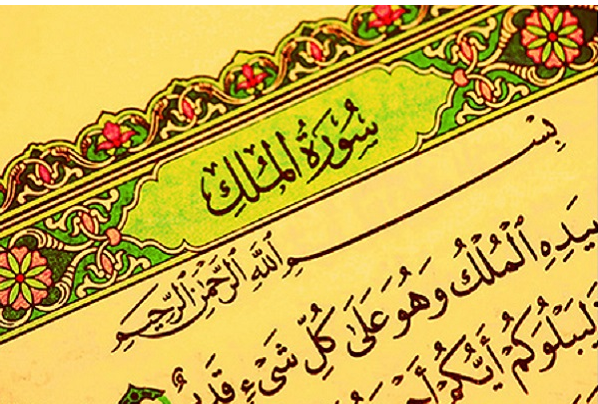 سُورَةُ المُلْكِ
بِسْمِ اللَّهِ الرَّحْمَٰنِ الرَّحِيمِ
بِيَدِهِ الْمُلْكُ وَهُوَ عَلَىٰ كُلِّ شَيْءٍ قَدِيرٌ
لِيَبْلُوَكُمْ أَيُّكُمْ